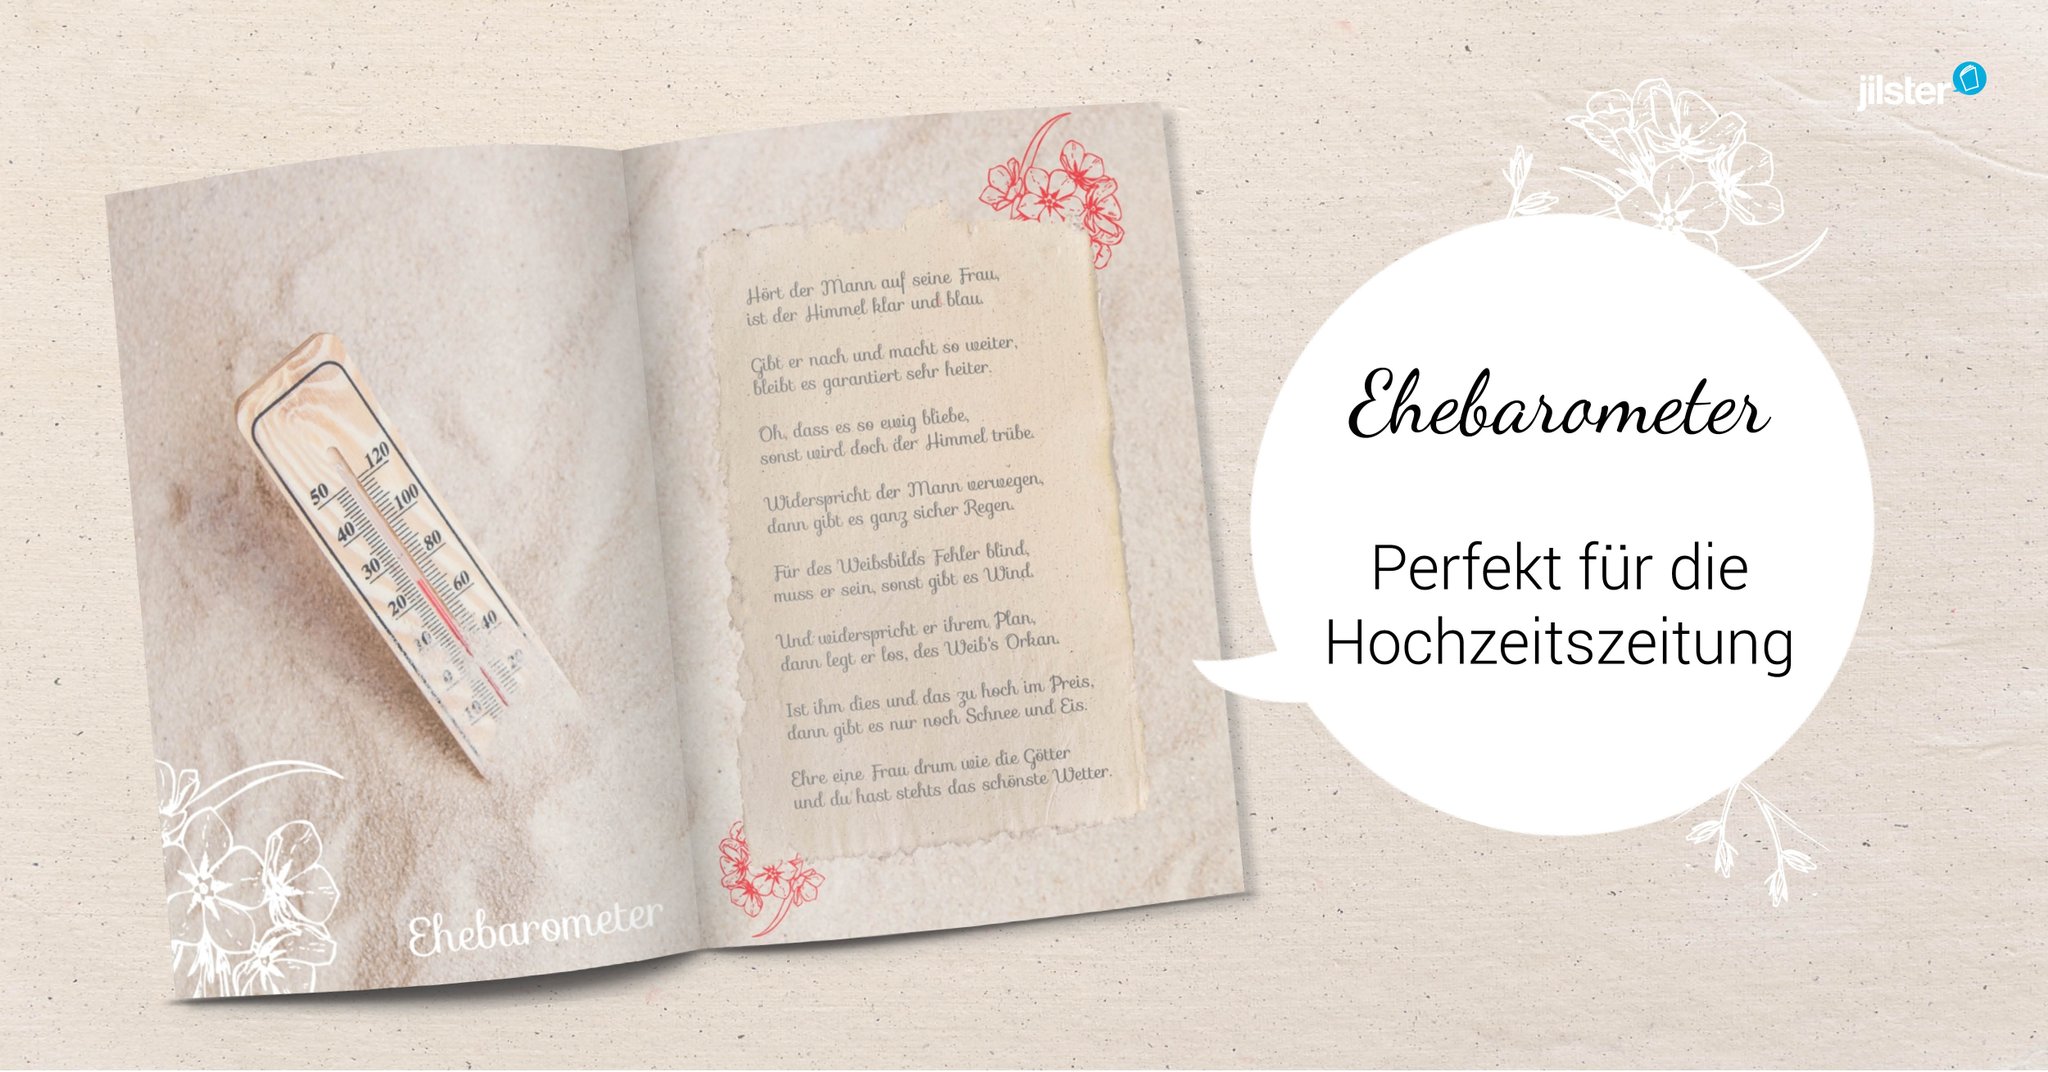 jilster
50
120
40
100
30
80
20
60
10
40
0
20
10
Ehebarometer
Hört der Mann auf seine Frau,
ist der Himmel klar und blau.
Gibt er nach und macht so weiter,
bleibt es garantiert sehr heiter.
Oh, dass es so ewig bliebe,
sonst wird doch der Himmel trübe.
Widerspricht der Mann verwegen,
dann gibt es ganz sicher Regen.
Für des Weibsbilds Fehler blind,
muss er sein, sonst gibt es Wind.
Und widerspricht er ihrem Plan,
dann legt er los, des Weib's Orkan.
Ist ihm dies und das zu hoch im Preis,
dann gibt es nur noch Schnee und Eis.
Ehre eine Frau drum wie die Götter
und du hast stehts das schönste Wetter.
Ehebarometer
Perfekt für die
Hochzeitszeitung